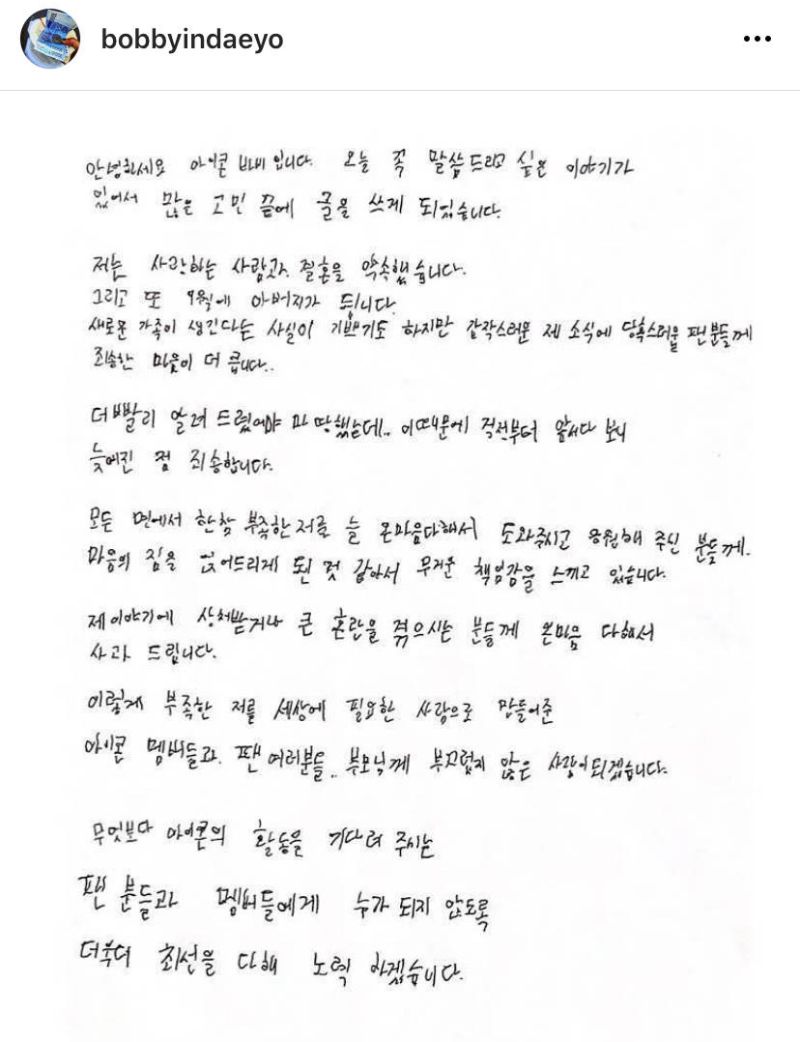 bobbyindaeyo
안녕하세요 아이콘 바비 입니다. 오늘 꼭 말씀드리고 싶은 이야기가
있어서 많은 고민 끝에 글을 쓰게 되었습니다.
저는 사랑하는 사람과 결혼을 약속했습니다.
그리고 또 9월에 아버지가 됩니다.
새로운 가족이 생긴다는 사실이 기쁘기도 하지만 갑작스러운 제 소식에 당혹스러울 팬분들께
죄송한 마음이 더 큽니다..
더 빨리 알려 드렸어야 마땅했는데.. 이 때문에 걱정부터 앞서다 보니
늦어진 점 죄송합니다.
모든 면에서 한참 부족한 저를 늘 온마음다해서 도와주시고 응원해 주신 분들께.
마음의 짐을 얹어드리게 된 것 같아서 무거운 책임감을 느끼고 있습니다.
제 이야기에 상처받거나 큰 혼란을 겪으시는 분들께 온마음 다해서
사과 드립니다.
이렇게 부족한 저를 세상에 필요한 사람으로 만들어준
아이콘 멤버들과. 팬 여러분들.. 부모님께 부끄럽지 않은 사람이되겠습니다.
무엇보다 아이콘의 활동을 기다려 주시는
팬 분들과 멤버들에게 누가 되지 않도록
더욱더 최선을 다해 노력 하겠습니다.